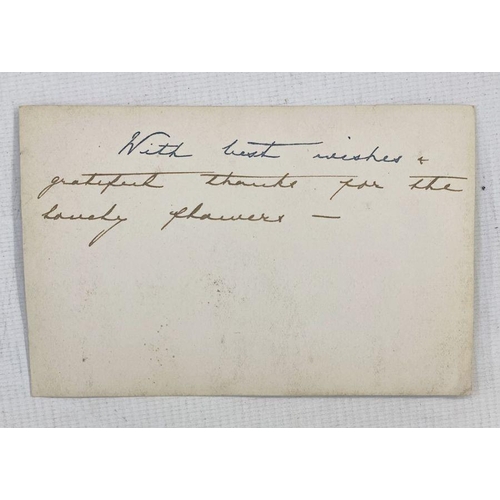 With best wishes &
grateful thanks for the
lovely flowers —